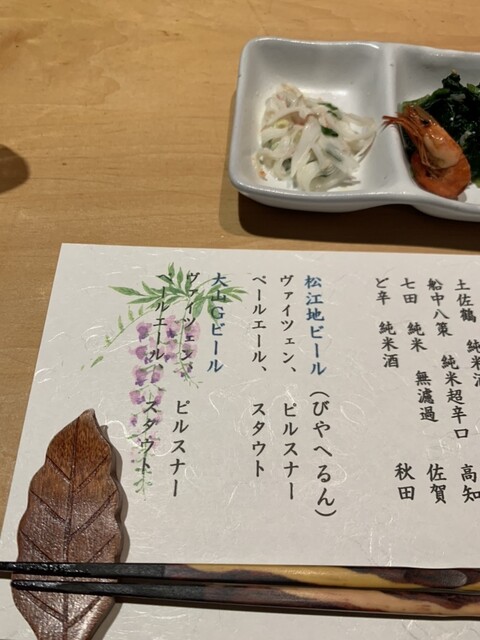 土佐鶴 純米酒 高知
船中八策 純米超辛口
七田 純米 無濾過 佐賀
ど辛 純米酒 秋田
松江地ビール(びやへるん)
ヴァイツェン、ピルスナー
ペールエール、スタウト
大山Gビール
ヴァイツェン、ピルスナー
ペールエール、スタウト